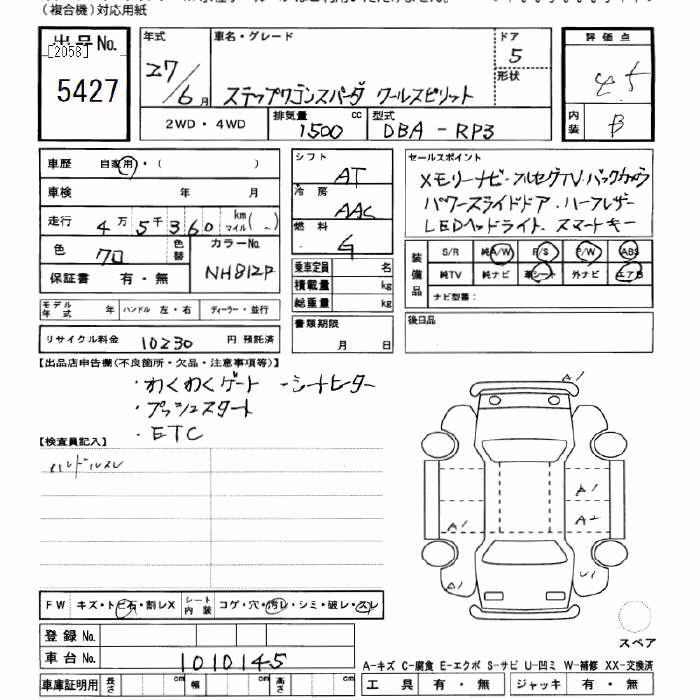 (複合機)対応用紙
出品No.
[2058]
5427
年式 27/6月
車名・グレード
ステップワゴンスパーダ クールスピリット
ドア 5
形状
評価点
4.5
内装 B
2WD・4WD
排気量 1500 cc
型式 DBA-RP3
車歴 自家用・( )
車検 年 月
走行 4万5千360 km(マイル)
色 クロ
色替
カラーNo. NH812P
保証書 有・無
モデル年式 年 ハンドル 左・右 ディーラー・並行
リサイクル料金 10230 円 預託済
シフト AT
冷房 AAC
燃料 G
乗車定員 名
積載量 kg
総重量 kg
書類期限
月 日
セールスポイント
メモリーナビ・フルセグTV・バックカメラ
パワースライドドア・ハーフレザー
LEDヘッドライト・スマートキー
装備品
S/R 純A/W P/S P/W ABS
純TV 純ナビ 革シート 外ナビ エアB
ナビ型番:
後日品
【出品店申告欄(不良箇所・欠品・注意事項等)】
・わくわくゲート ・シートヒーター
・プッシュスタート
・ETC
【検査員記入】
ハンドルスレ
A1
A1
A2
A1
A1
U1
FW キズ・トビ石・割レX
シート内装 コゲ・穴・汚レ・シミ・破レ・スレ
登録No.
車台No. 1010145
車庫証明用 長さ cm 幅 cm 高さ cm
スペア
A-キズ C-腐食 E-エクボ S-サビ U-凹ミ W-補修 XX-交換済
工具 有・無 ジャッキ 有・無